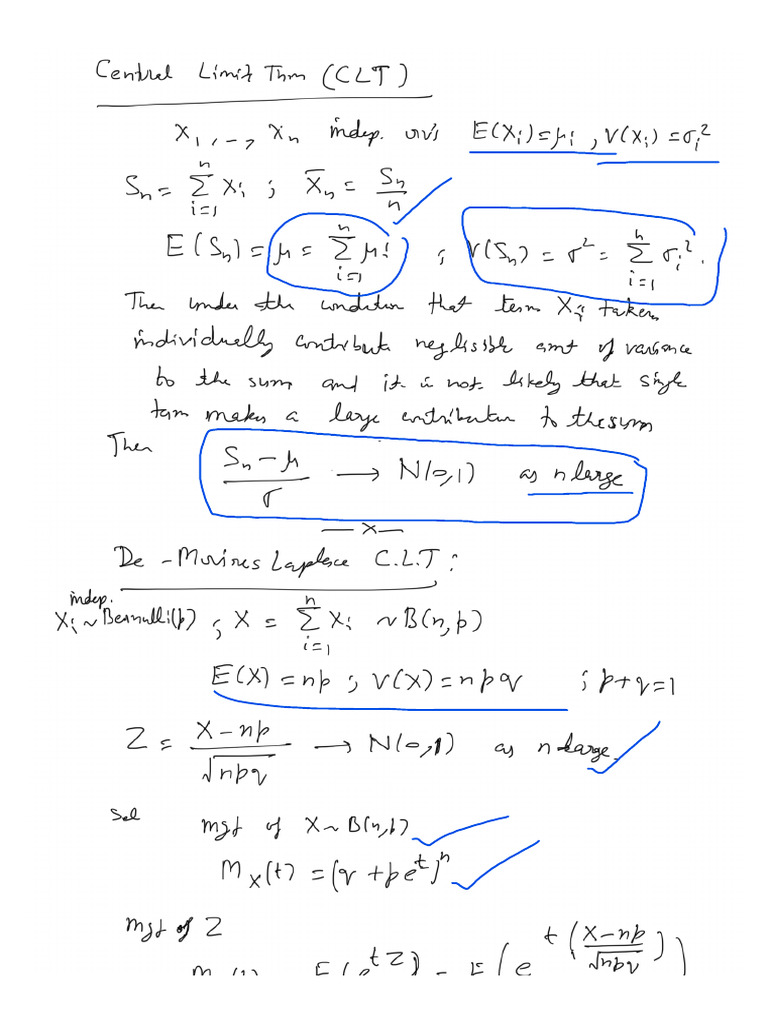 Central Limit Thm (CLT)
X₁, --, Xₙ indep. rv's E(Xᵢ)=μᵢ , V(Xᵢ)=σᵢ²
Sₙ = ∑ᵢ₌₁ⁿ Xᵢ ; X̄ₙ = Sₙ/n
E(Sₙ) = μ = ∑ᵢ₌₁ⁿ μᵢ ; V(Sₙ) = σ² = ∑ᵢ₌₁ⁿ σᵢ².
Then under the condition that term Xᵢ taken
individually contribute negligible amt of variance
to the sum and it is not likely that single
term makes a large contribution to the sum
Then (Sₙ-μ)/σ → N(0,1) as n large
—x—
De-Movires Laplace C.L.T:
indep.
Xᵢ ~ Bernoulli(p) ; X = ∑ᵢ₌₁ⁿ Xᵢ ~ B(n,p)
E(X) = np ; V(X) = npq ; p+q=1
Z = (X-np)/√npq → N(0,1) as n large.
Sol mgf of X~B(n,p)
M_X(t) = (q+pe^t)^n
mgf of Z
E(e^{tZ}) = E(e^{t((X-np)/√npq)})